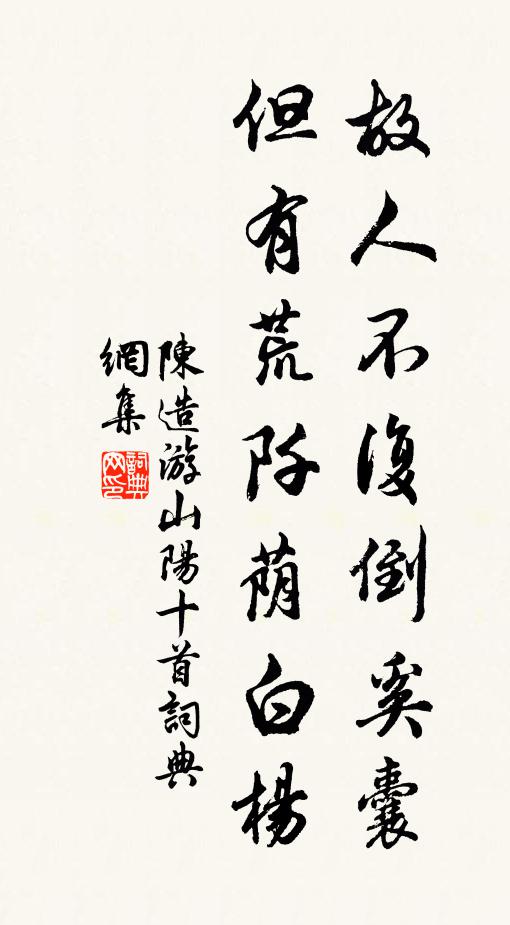 故人不復倒奚囊
但有荒阡蔭白楊
陳造游山陽十首詞典
網集
詞典网印